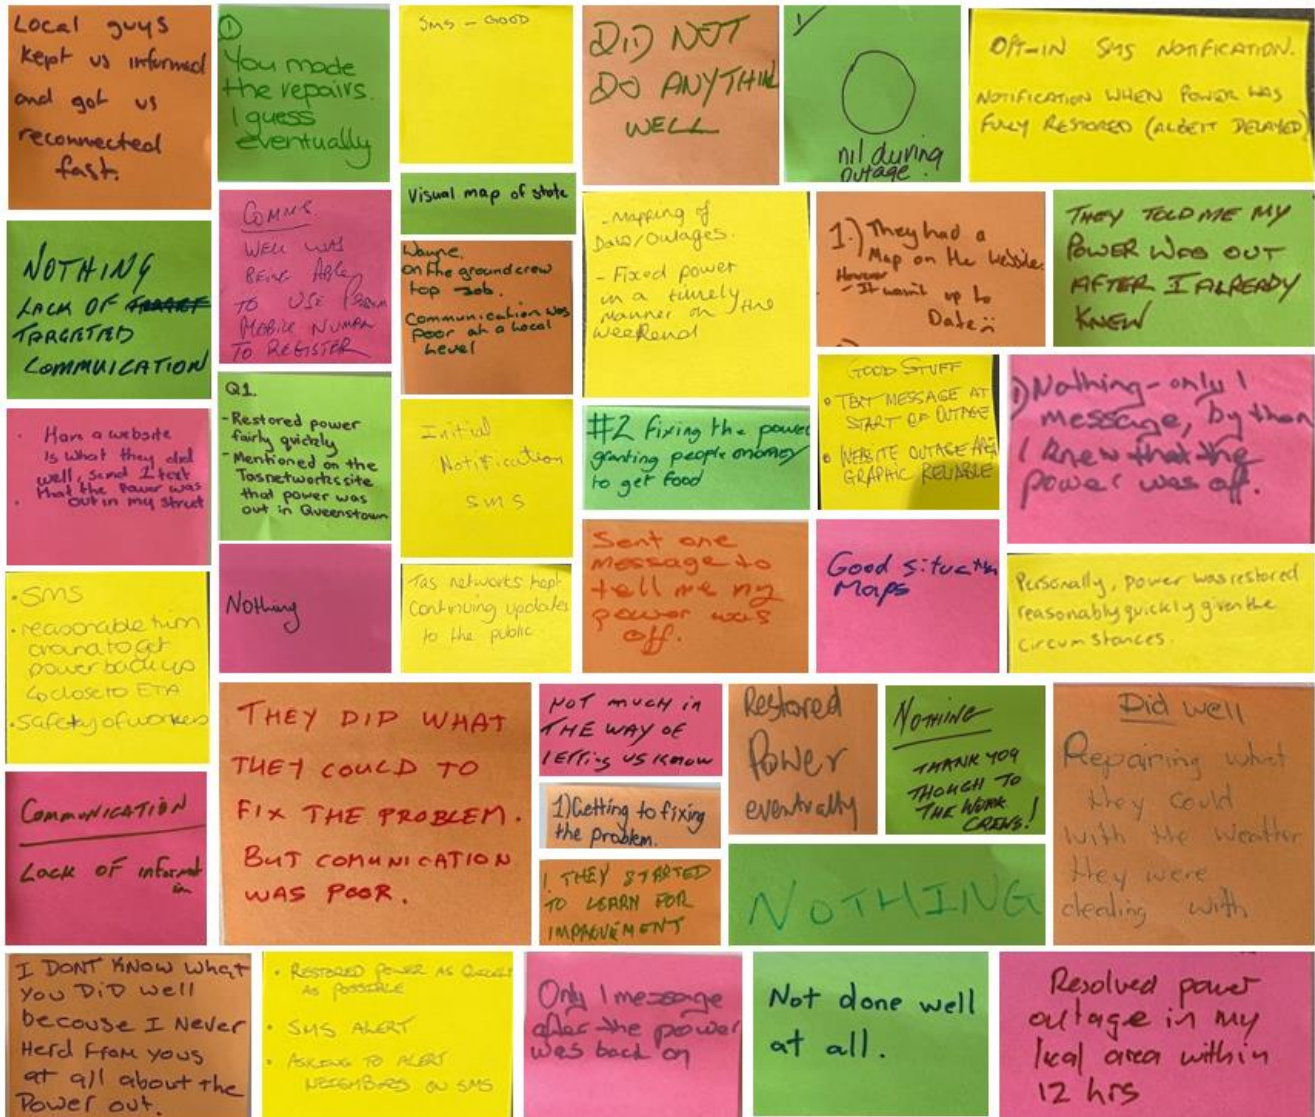 Local guys
kept us informed
and got us
reconnected
fast.
①
You made
the repairs.
I guess
eventually
SMS - GOOD
DID NOT
DO ANYTHING
WELL
nil during
outage.
OPT-IN SMS NOTIFICATION.
NOTIFICATION WHEN POWER WAS
FULLY RESTORED (ALBEIT DELAYED)
NOTHING
LACK OF
TARGETED
COMMUICATION
COMMS.
WELL WAS
BEING ABLE
TO USE
MOBILE NUMBER
TO REGISTER
Visual map of state
Wayne.
on the ground crew
top Job.
Communication was
poor at a local
level
- Mapping of
Data/Outages.
- Fixed power
in a timely
manner on the
weekend
1.) They had a
Map on the website.
However
- It wasn't up to
Date
THEY TOLD ME MY
POWER WAS OUT
AFTER I ALREADY
KNEW
• Have a website
is what they did
well, send 1 text
that the power was
out in my street
Q1.
- Restored power
fairly quickly
- Mentioned on the
Tasnetworks site
that power was
out in Queenstown
Initial
Notification
SMS
#2 fixing the power
granting people
to get food
GOOD STUFF
• TEXT MESSAGE AT
START OF OUTAGE
• WEBSITE OUTAGE AREA
GRAPHIC RELIABLE
1) Nothing - only 1
message, by then
I knew that the
power was off.
• SMS
• reasonable turn
around to get
power back up
↳ close to ETA
• Safety of workers
Nothing
Tas networks kept
continuing updates
to the public
Sent one
message to
tell me my
power was
off.
Good situation
Maps
Personally, power was restored
reasonably quickly given the
circumstances.
COMMUNICATION
Lack OF informat
ion
THEY DID WHAT
THEY COULD TO
FIX THE PROBLEM.
BUT COMUNICATION
WAS POOR.
NOT much in
THE WAY OF
letting us know
1) Getting to fixing
the problem.
1. THEY STARTED
TO LEARN FOR
IMPROVEMENT
Restored
Power
eventually
NOTHING
THANK YOU
THOUGH TO
THE WORK
CREWS!
NOTHING
Did well
Repairing what
they could
with the weather
they were
dealing with
I DONT KNOW what
you DiD well
because I Never
Herd ffom yous
at all about the
Power out.
• RESTORED POWER AS QUICKLY
AS POSSIBLE
• SMS ALERT
• ASKING TO ALERT
NEIGHBORS ON SMS
Only 1 message
after the power
was back on
Not done well
at all.
Resolved power
outage in my
local area within
12 hrs